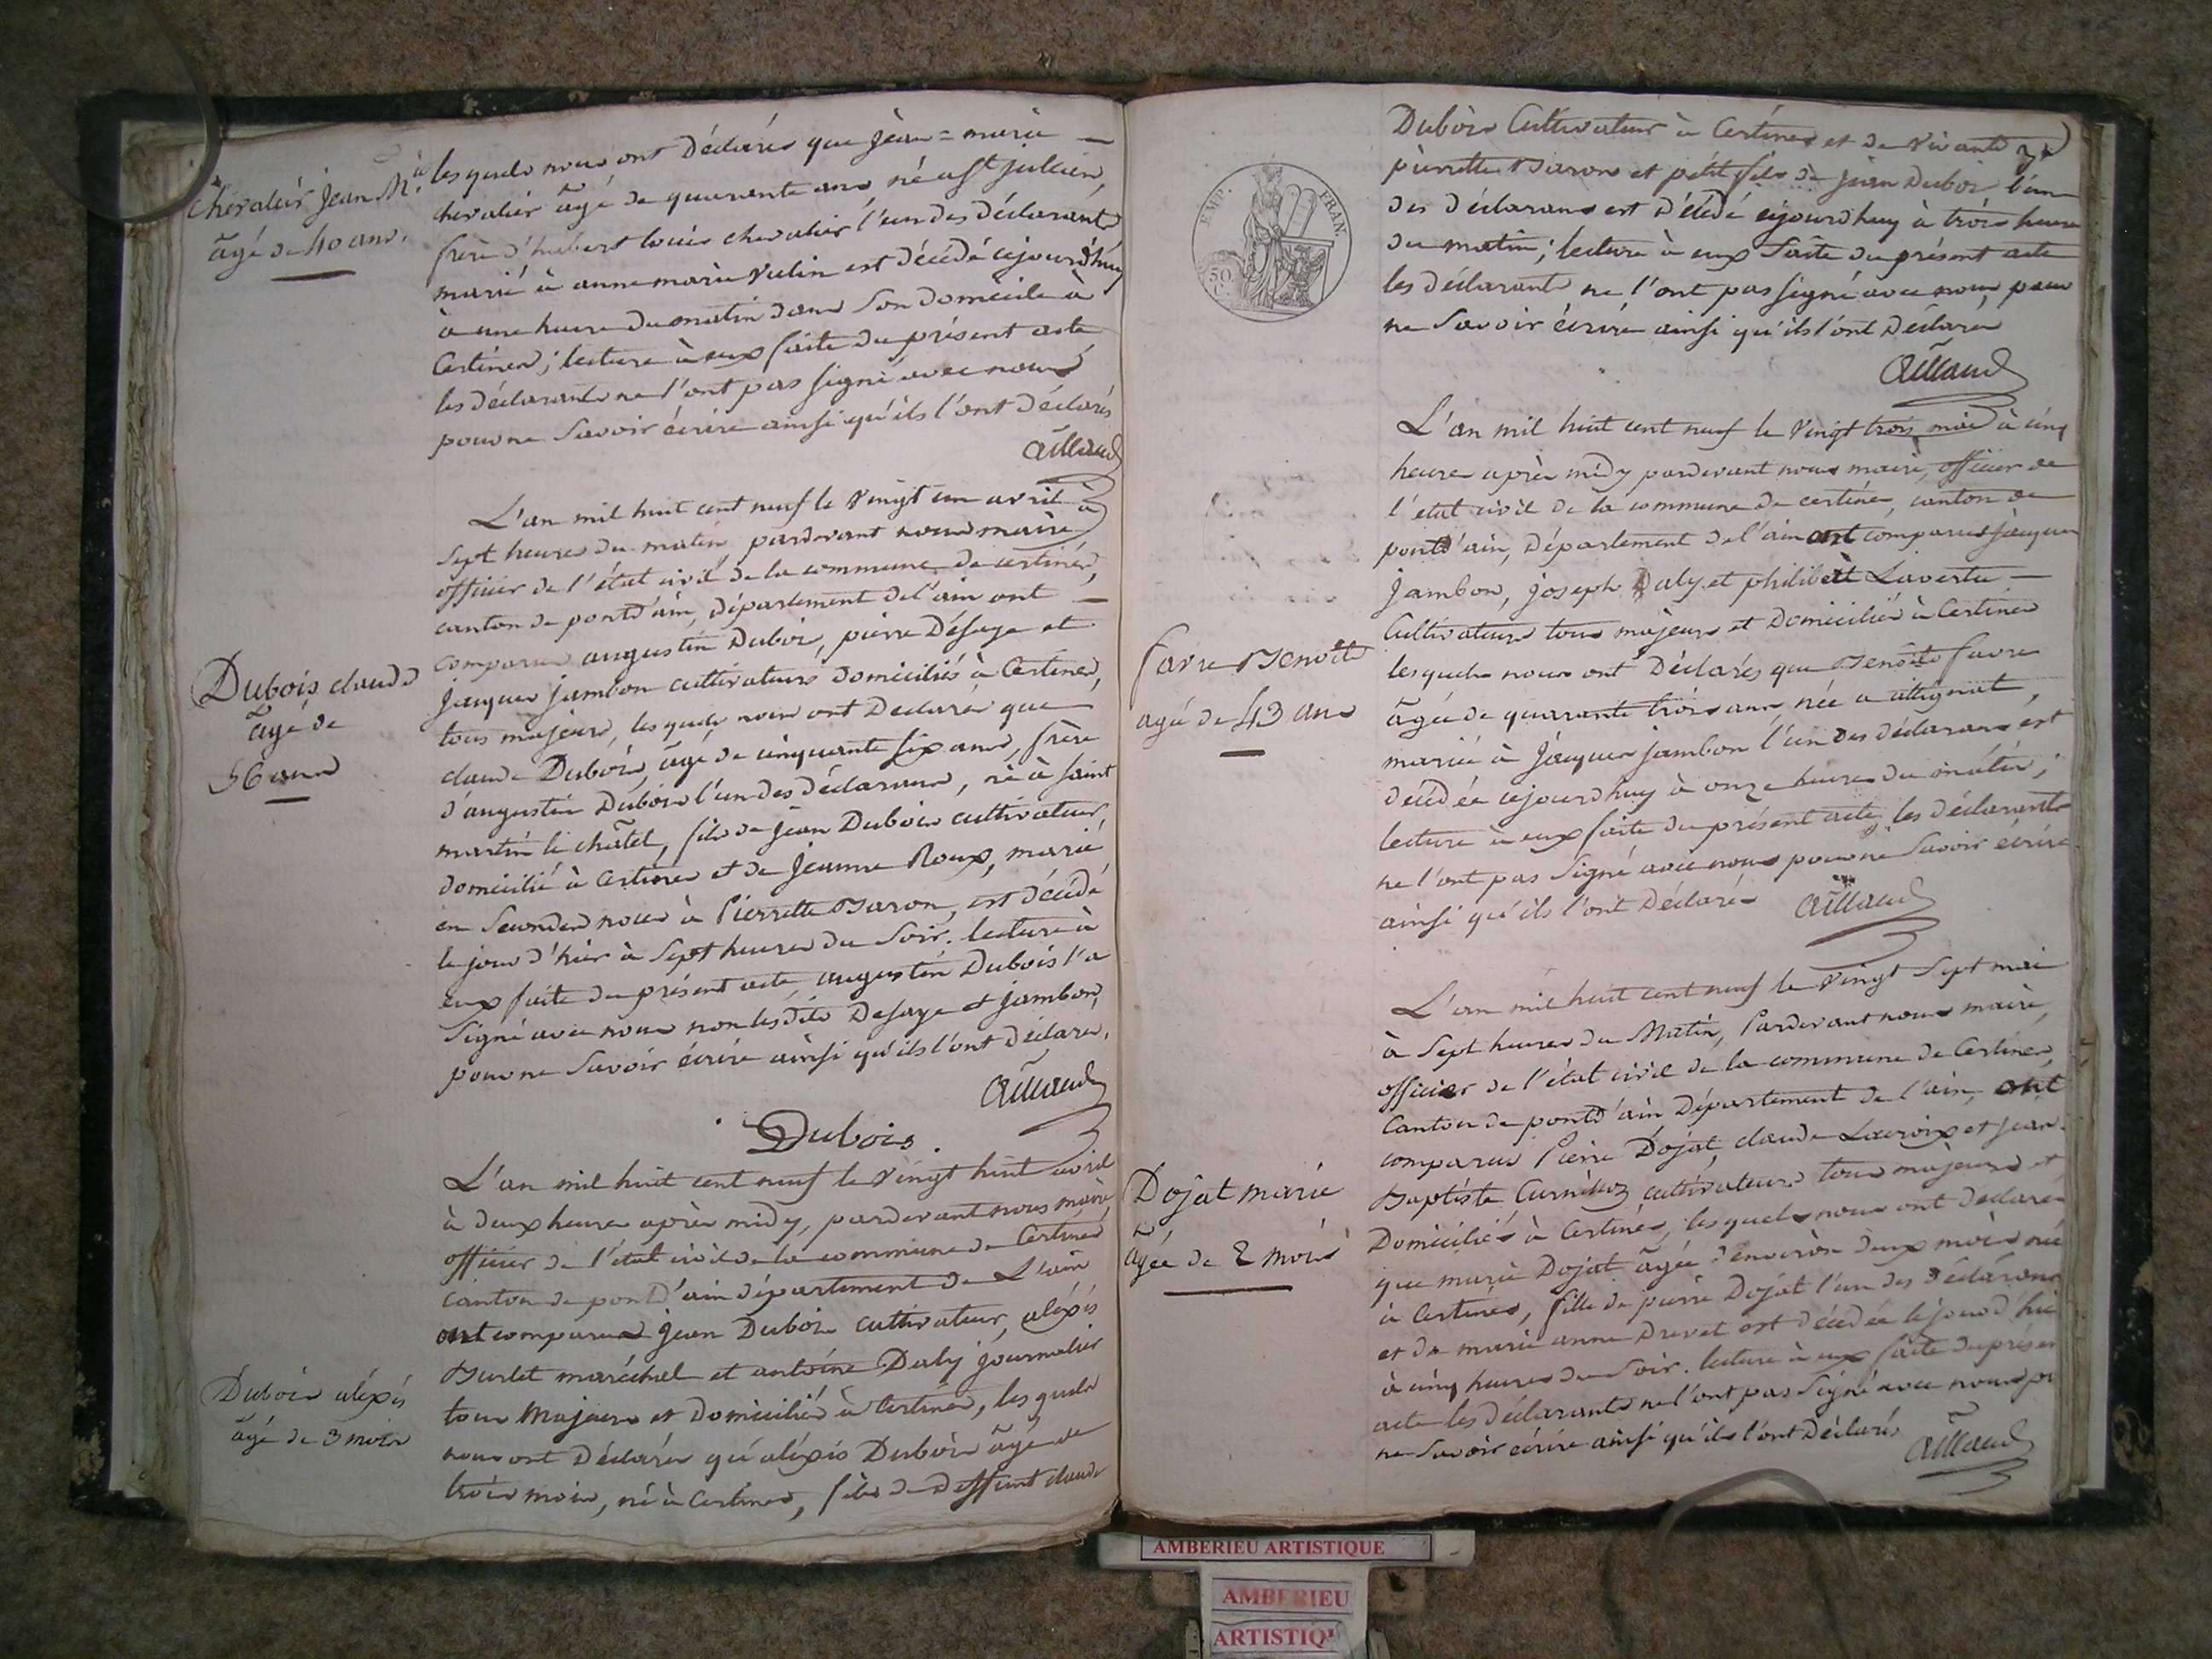 Chevalier Jean M.ie
âgé de 40 ans.
lesquels nous ont Déclarés que jean=marie
chevalier âgé de quarante ans, né a St jullien,
frère d'hubert louis chevalier l'un des déclarants
marié à anne marie Vulin est décédé cejourdhuy
à une heure du matin dans Son domicile à
Certines; lecture à eux faite du présent acte
les déclarants ne l'ont pas signé avec nous
pour ne Savoir écrire ainsi qu'ils l'ont Déclarés
Aillaud
Dubois claude
âgé de
56 ans
L'an mil huit cent neuf le Vingt un avril à
Sept heures du matin, pardevant nous maire
officier de l'état civil de la commune de certines,
canton de pontd'ain, département de l'ain ont
comparus augustin Dubois, pierre Désaye et
jaques jambon cultivateurs domiciliés à Certines,
tous majeurs, lesquels nous ont Declarés que
claude Dubois, âgé de cinquante six ans, frère
d'augustin Dubois l'un des déclarans, né à saint
martin le châtel, fils de jean Dubois cultivateur,
domicilié à Certines et de jeanne Roux, marié
en Secondes noces à Pierrette Baron, est décédé
le jour d'hier à Sept heures du Soir. lecture à
eux faite du présent acte, augustin Dubois l'a
Signé avec nous non lesdits Desaye et jambon,
pour ne Savoir écrire ainsi qu'ils l'ont Déclarés.
Aillaud
Dubois
Dubois aléxis
âgé de 3 mois
L'an mil huit cent neuf le Vingt huit avril
à deux heures après midy, pardevant nous maire,
officier de l'état civil de la commune de Certines
canton de pontD'ain département de L'ain
ont comparus jean Dubois cultivateur, aléxis
Burlet maréchal et antoine Daly journalier
tous Majeurs et domiciliés à Certines, lesquels
nous ont Déclarés qu'aléxis Dubois âgé de
trois mois, né à Certines, fils de Deffunt claude
EMP. FRAN.
50 C.
Dubois Cultivateur à Certines et de vivante
pierrette Baron et petit fils de jean Dubois l'un
des déclarans est Décédé cejourdhuy à trois heures
du matin; lecture à eux faite du présent acte
les déclarants ne l'ont pas signé avec nous pour
ne Savoir écrire ainsi qu'ils l'ont Déclarés
Aillaud
favre Benoîte
agée de 43 ans
L'an mil huit cent neuf le Vingt trois mai à cinq
heures après midy pardevant nous maire, officier de
l'état civil de la commune de certines, canton de
pontd'ain, Département de l'ain ont comparus jaques
jambon, joseph Daly et philibert Lavertu
Cultivateurs tous majeurs et Domiciliés à Certines
lesquels nous ont Déclarés que Benoîte favre
âgée de quarante trois ans née a attignat,
mariée à Jaques jambon l'un des déclarans est
décédée cejourdhuy à onze heures du matin;
lecture à eux faite du présent acte, les déclarants
ne l'ont pas Signé avec nous pour ne Savoir écrire
ainsi qu'ils l'ont Déclarés Aillaud
Dojat marie
âgée de 2 mois
L'an mil huit cent neuf le Vingt Sept mai
à Sept heures du Matin, Pardevant nous maire,
officier de l'état civil de la commune de Certines
Canton de pontd'ain Département de l'ain, ont
comparus Pierre Dojat, claude Lacroix et jean
Baptiste cultivateurs tous majeurs et
Domiciliés à Certines, lesquels nous ont déclarés
que marie Dojat âgée d'environ deux mois née
à Certines, fille de pierre Dojat l'un des déclarans
et de marie anne Drevet est décédée le jour d'hie
à cinq heures du Soir. lecture à eux faite du présen
acte les déclarants ne l'ont pas Signé avec nous po
ne Savoir écrire ainsi qu'ils l'ont Déclarés
Aillaud
AMBERIEU ARTISTIQUE
AMBERIEU
ARTISTIQU